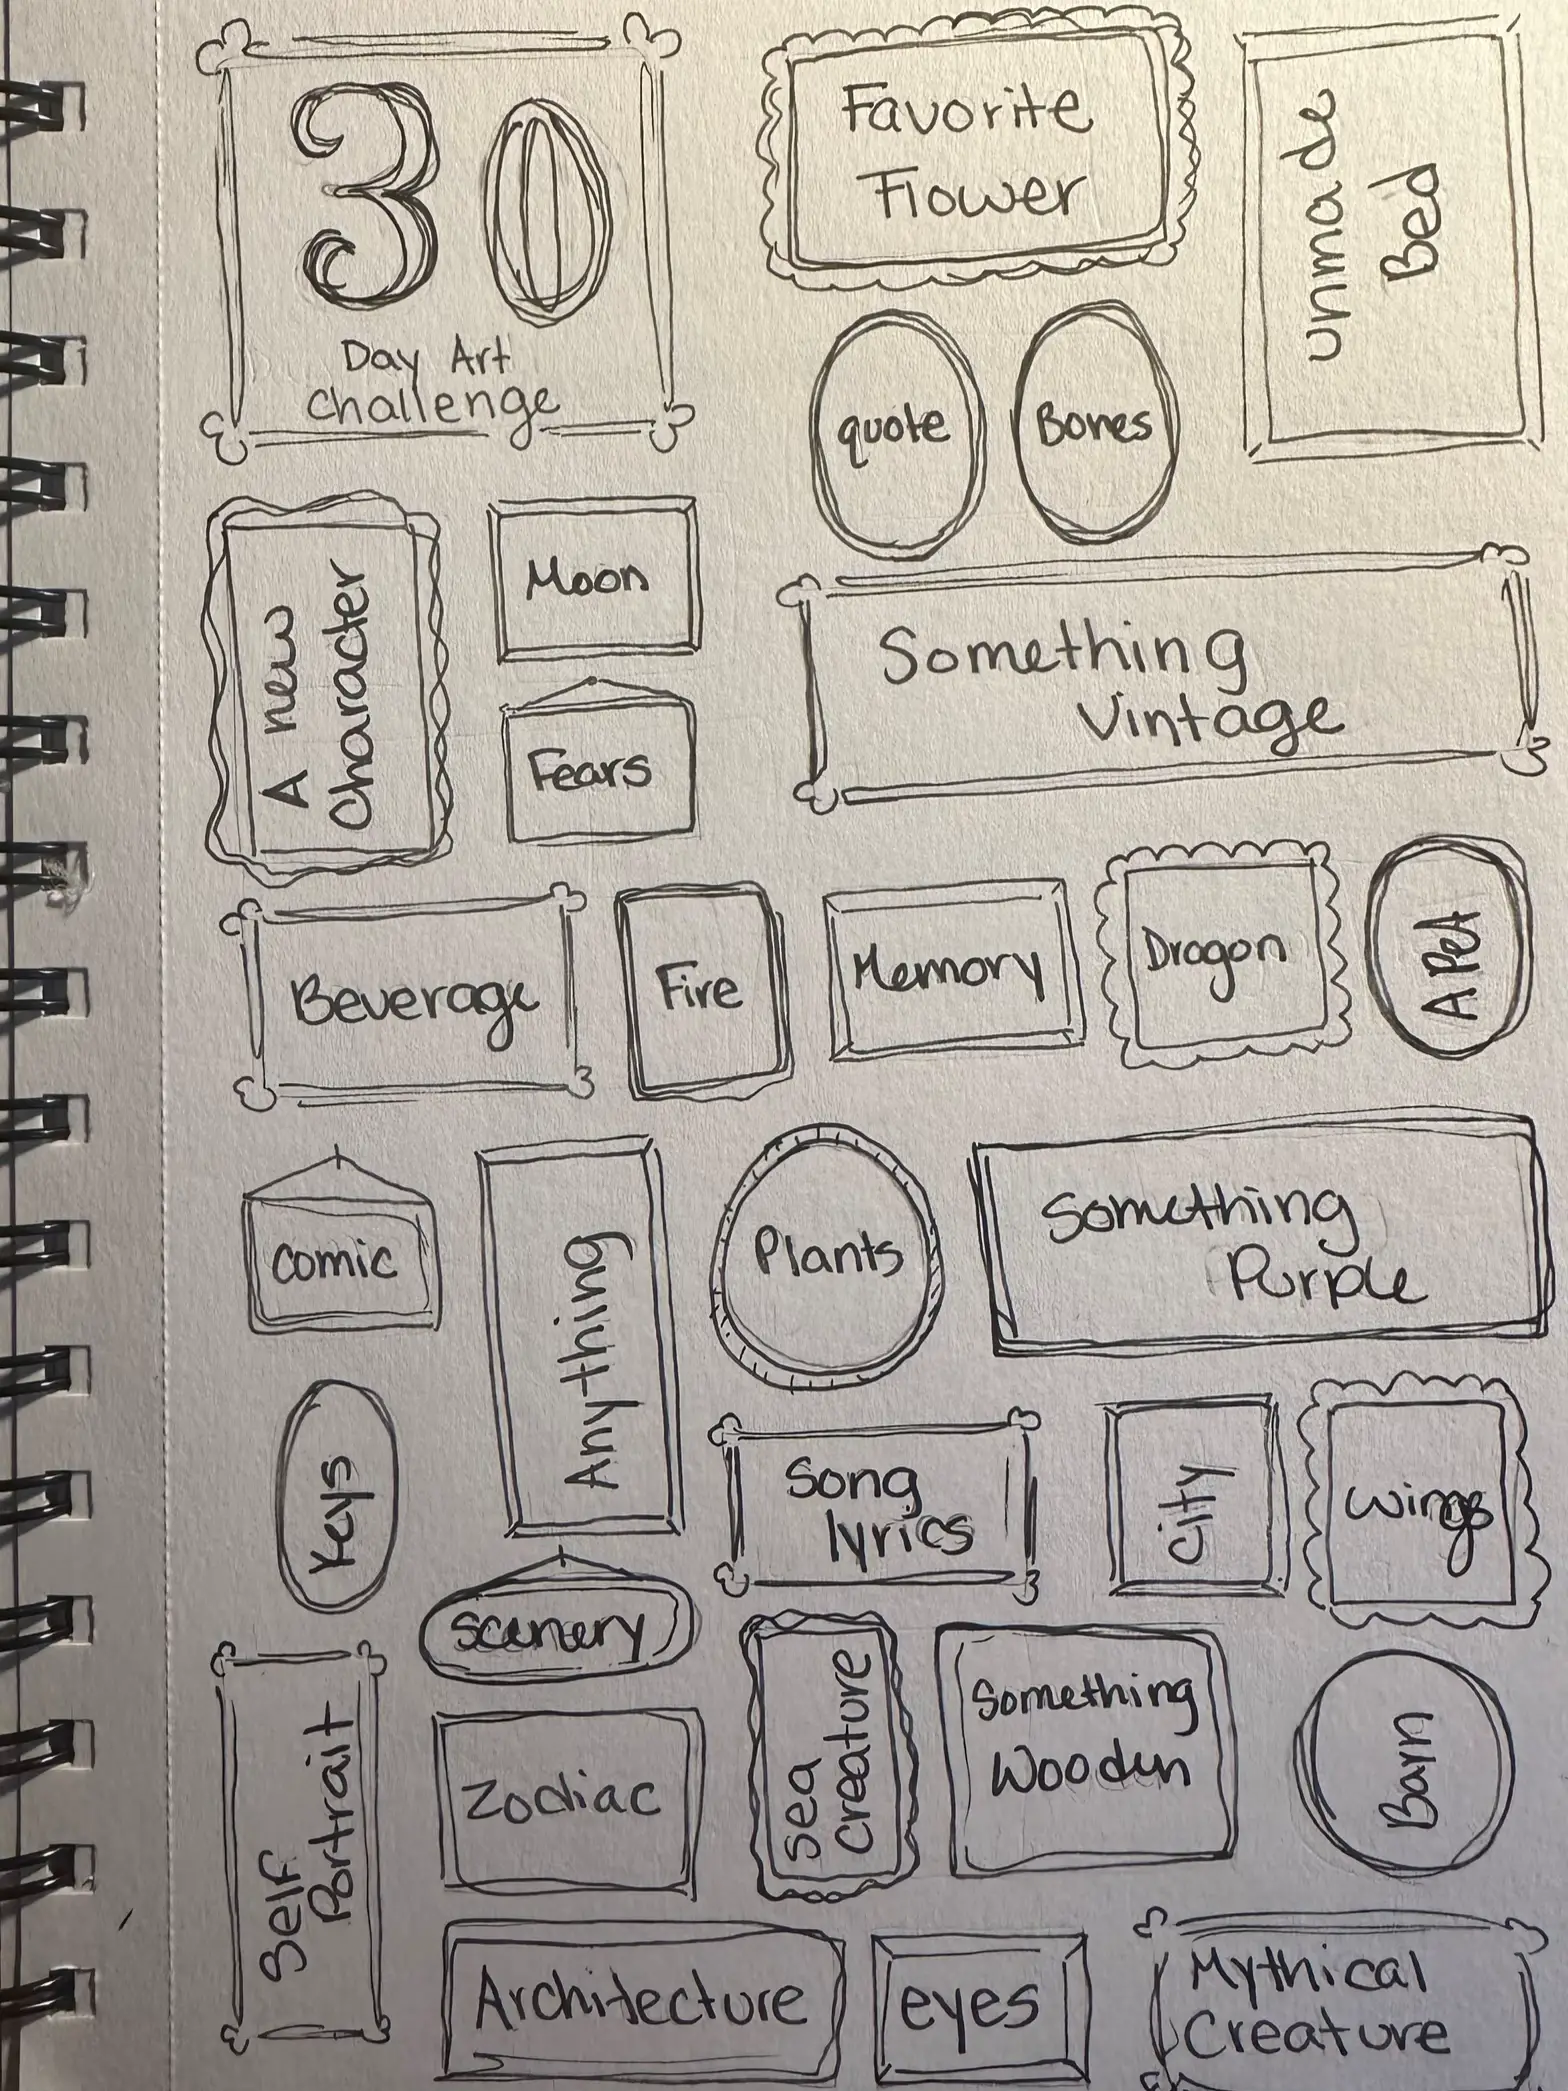 30
Day Art
Challenge
Favorite
Flower
unmade
Bed
quote
Bones
A new
Character
Moon
Fears
Something
Vintage
Beverage
Fire
Memory
Dragon
A Pet
comic
Anything
Plants
Something
Purple
Keys
Song
lyrics
City
Wings
scenery
Self
Portrait
Zodiac
Sea
Creature
Something
Wooden
Barn
Architecture
eyes
Mythical
Creature